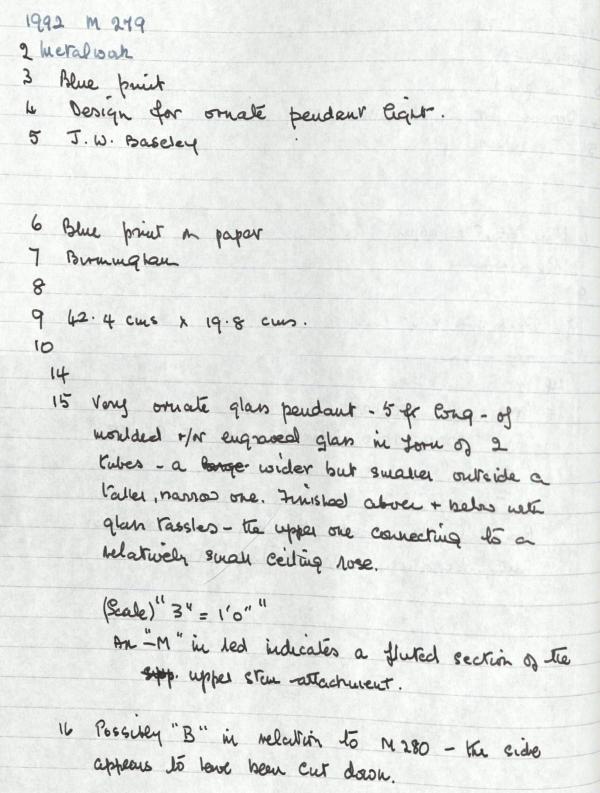 1992 M 279
2 Metalwork
3 Blue print
4 Design for ornate pendent light.
5 J.W. Baseley
6 Blue print on paper
7 Birmingham
8
9 42.4 cms x 19.8 cms.
10
14
15 Very ornate glass pendant - 5 ft long - of
moulded +/or engraved glass in form of 2
tubes - a large wider but smaller outside a
taller, narrow one. Finished above + below with
glass tassles - the upper one connecting to a
relatively small ceiling rose.
(Scale) "3" = 1'0""
An "-M" in led indicates a fluted section of the
supp. upper stem attachment.
16 Possibly "B" in relation to M280 - the side
appears to have been cut down.